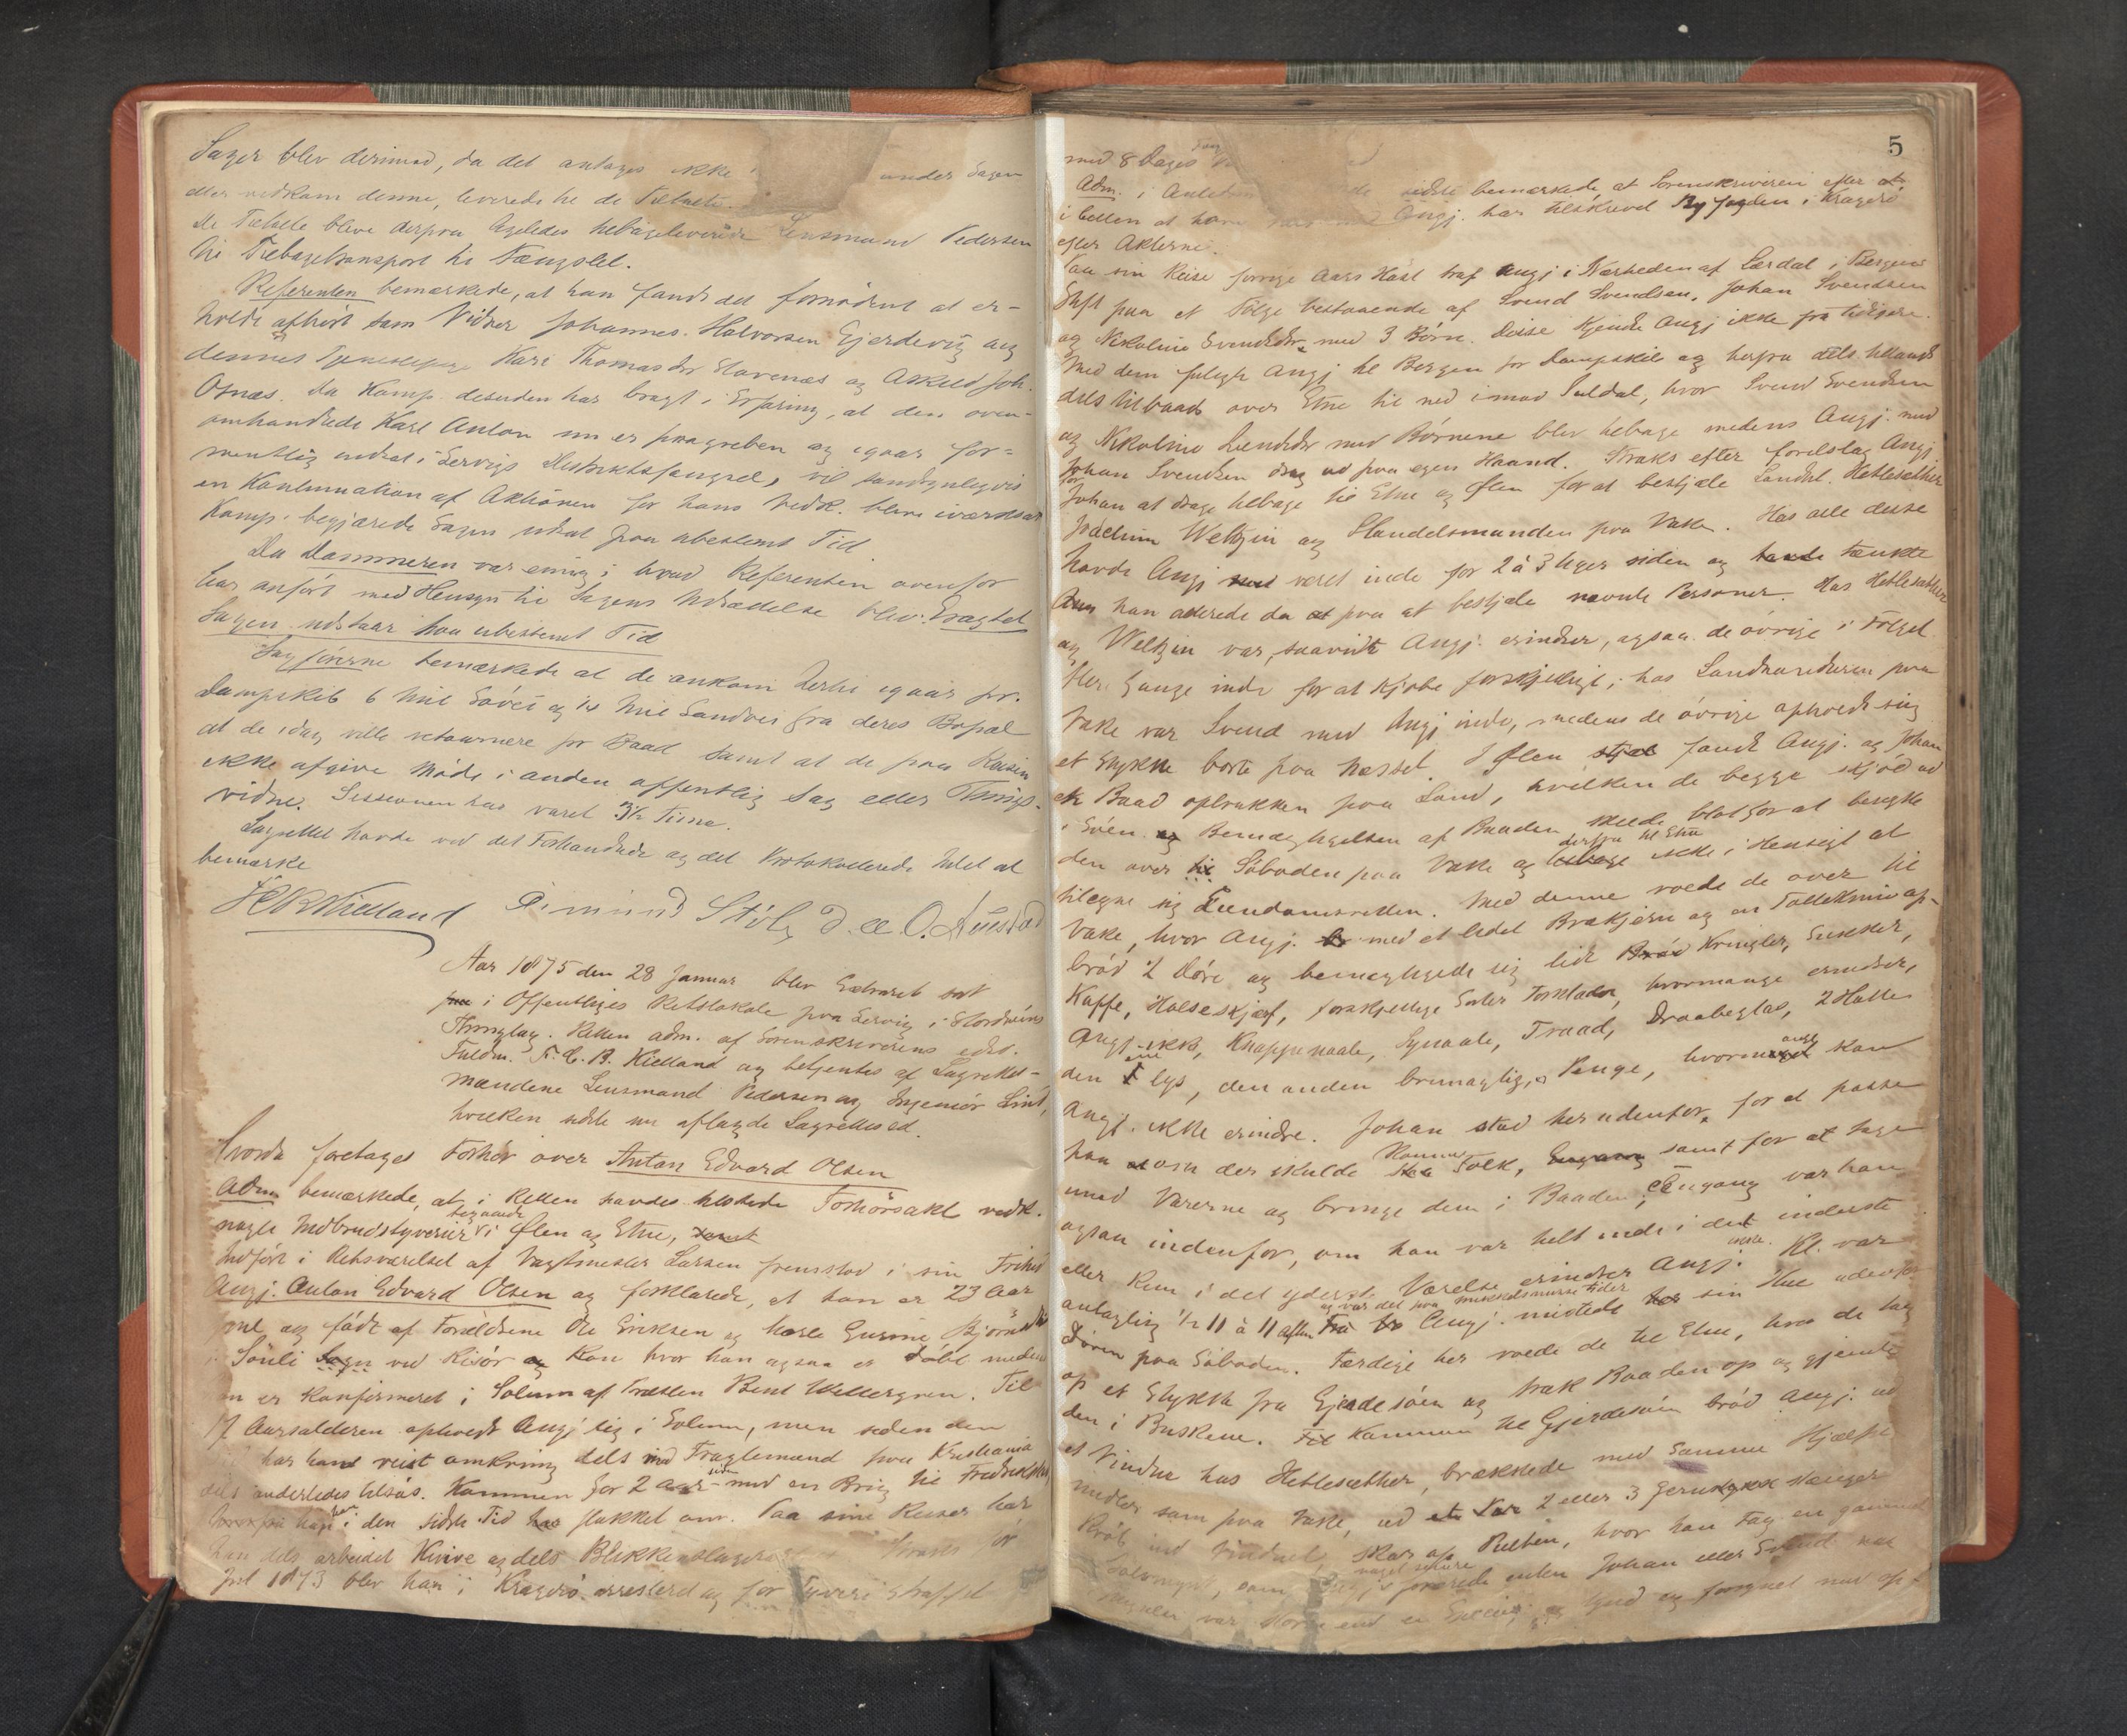 Sager blev derimod, da det antages ikke under Sagen
eller vedkom denne, leverede de Tiltalte.
De Tiltalte bleve derpaa ligeledes tilbageleverede Lensmand Pedersen
til Tilbagetransport til Fængslet.
Referenten bemærkede, at han fandt det fornødent at er-
holde afhørt som Vidner Johannes Halvorsen Gjerdevig og
dennes Tjenestepige Kari Thomasdtr Havenæs og Askild Joh.
Osnæs. Da Komp. desuden har bragt i Erfaring, at den oven-
omhandlede Karl Anton nu er paagreben og igaar for-
mentlig indsat i Lervigs Distriktsfængsel, vil sandsynligvis
en Kontinuation af Aktionen for hans Vedk. blive iværdsat
Komp. begjærede Sagen udsat paa ubestemt Tid.
Da Dommeren var enig i hvad Referenten ovenfor
har anført med Hensyn til Sagens Udsættelse blev Eragtet
Sagen udstaar paa ubestemt Tid
Sagførerne bemærkede at de ankom hertil igaar pr.
Dampskib 6 Mil Søvei og 1/4 Mil Landvei fra deres Bopæl
at de idag ville retournere pr Baad samt at de paa Reisen
ikke afgive Møde i anden offentlig Sag eller Things-
vidne. Sessionen har varet 3½ Time.
Lagrettet havde ved det Forhandlede og det Protokollerede Intet at
bemærke
Kielland
Aar 1875 den 28 Januar blev Extraret sat
paa i Offentliges Retslokale paa Lervig i Stordøens
Thinglag. Retten adm. af Sorenskriverens edsv.
Fuldm. F. C. B. Kielland og betjentes af Lagrettes-
mændene Lensmand Pedersen og Ingeniør Lind,
hvilken sidste nu aflagde Lagrettesed.
Hvorda foretages Forhør over Anton Edvard Olsen
Adm bemærkede, at i Retten havdes tilstede Forhørsakt vedk.
begaaede
nogle Indbrudstyverier i Ølen og Etne, samt
Indført i Retsværelset af Vagtmester Larsen fremstod i sin Frihed
Angj. Anton Edvard Olsen og forklarede, at han er 23 Aar
gml og født af Forældrene Ole Eriksen og
Sønli Sogn ved Risør og kan hvor han ogsaa er døbt medens
er Konfirmeret i Solum af Præsten Bent Wettergren. Til
17 Aarsalderen opholdt Angj sig i Solum, men siden den
har han reist omkring dels med Fragtemænd paa Kristiania
dels anderledes tilsøs. Kommen for 2 Aar siden med en Brig til Fredrikshald
han i den sidste Tid har flakket om. Paa sine Reiser har
han dels arbeidet Knive og dels Blikkenslager
Juel 1873 blev han i Kragerø arresteret og for Tyveri straffet
5
med 8 Dages
Adm. i Anledning sidste bemærkede, at Sorenskriveren efter at
i Cellen at have Angj. har tilskrevet Byfogden i Kragerø
efter Akterne.
Paa sin Reise forrige Aars Høst traf Angj i Nærheden af Lærdal i Bergens
Stift paa et Følge bestaaende af Svend Svendsen, Johan Svendsen
og Nikoline Svendsdtr med 3 Børn. Disse kjendte Angj ikke fra tidligere.
Med dem fulgte Angj til Bergen pr Dampskib og herfra dels tillands
dels tilbaads over Etne til ned imod Suldal, hvor Svend Svendsen
og Nikoline Svendsdtr med Børnene blev tilbage medens Angj. med
Johan Svendsen drog ud paa egen Haand. Straks efter foreslog Angj.
for
Johan at drage tilbage til Etne og Ølen for at bestjæle Landhdl. Hetlesæther
Joachim Weltzin og Handelsmanden paa Vake. Hos alle disse
havde Angj med været inde for 2 à 3 Uger siden og havde tænkte
han allerede da at paa at bestjæle nævnte Personer. Hos Hetlesæther
og Weltzin var, saavidt Angj. erindrer, ogsaa de øvrige i Følget
flere Gange inde for at kjøbe forskjelligt; hos Landhandleren paa
Vake var Svend med Angj inde, medens de øvrige opholdt sig
et Stykke borte paa Næsset. I Ølen stjal fandt Angj. og Johan
en Baad optrukken paa Land, hvilken de begge skjød ud
i Søen. og Bemægtigelsen af Baaden skede blot for at benytte
derfra til Etne
den over til Søboden paa Vake og tilbage ikke i Hensigt at
tilegne sig Eiendomsretten. Med denne roede de over til
Vake, hvor Angj. br med et lidet Brækjern og en Tollekniv op-
brød 2 Døre og bemægtigede sig lidt Brød Kringler, Sukker,
Kaffe, Halseskjærf, forskjellige Sorter Forklæder, hvormange erindrer
Angj. ikke, Knappenaale, Synaale, Traad, Draabeglas, 2 Hatte
ene
den lys, den anden brunagtig, Penge, hvormeget kan
Angj. ikke erindre. Johan stod her udenfor, for at passe
komme
paa om der skulde staa Folk, Engang samt for at tage
imod Varerne og bringe dem i Baaden; Engang var han
ogsaa indenfor, om han var helt inde i det inderste
ikke.
eller kun i det yderste Værelse erindrer Angj. Kl. var
og var det paa Mikkelsmesse tider
antagelig ½ 11 à 11 aften Angj. mistede her sin Hue udenfor
Døren paa Søboden. Færdige her roede de til Etne, hvor de lag
op et Stykke fra Gjerdesøen og trak Baaden op og gjemte
den i Buskene. Kommen til Gjerdesøen brød Angj. ud
et Vindue hos Hetlesæther, brækkede med samme Hjælpe
midler som paa Vake, ud et Par 2 eller 3 Jern Stænger
Krøb ind Vinduet, skar op Pulten, hvor han tog en gammel
noget senere
Sølvmynt, som Angj. forærede enten Johan eller Svend